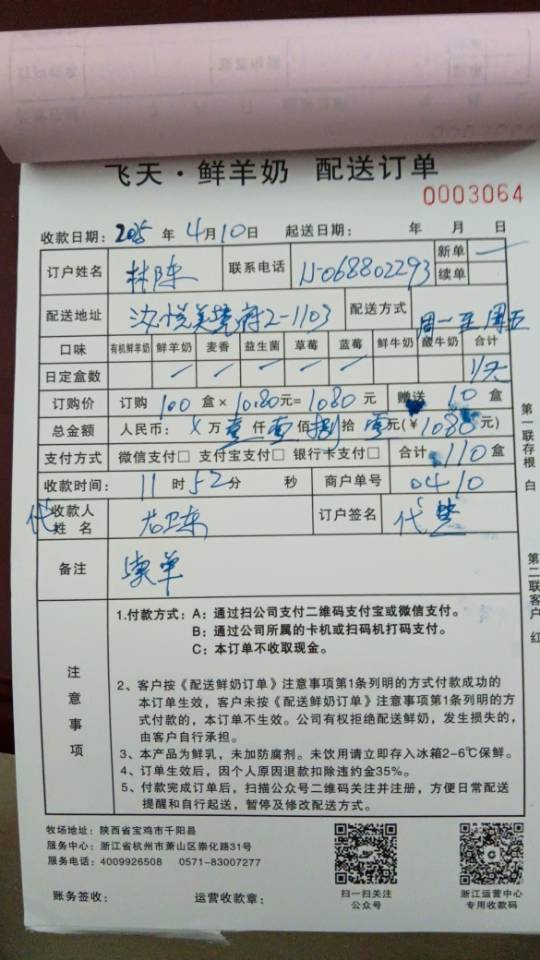 飞天·鲜羊奶 配送订单
0003064
收款日期: 2025 年 4 月 10 日 起送日期: 年 月 日
订户姓名 林陈 联系电话 15068802293 新单 一
续单
配送地址 2-1103 配送方式 周一至周五
口味 有机鲜羊奶 鲜羊奶 麦香 益生菌 草莓 蓝莓 鲜牛奶 酸牛奶 合计
日定盒数 1/天
订购价 订购 100 盒 × 10.80 元= 1080 元 赠送 10 盒
总金额 人民币: X 万 壹 仟 零 佰 捌 拾 零 元(¥ 1080 元)
支付方式 微信支付□ 支付宝支付□ 银行卡支付□ 合计 110 盒
收款时间: 11 时 52 分 秒 商户单号 0410
代收款人姓名 订户签名 代签
备注
注意事项
1.付款方式: A: 通过扫公司支付二维码支付宝或微信支付。
B: 通过公司所属的卡机或扫码机打码支付。
C: 本订单不收取现金。
2、客户按《配送鲜奶订单》注意事项第1条列明的方式付款成功的
本订单生效,客户未按《配送鲜奶订单》注意事项第1条列明的方
式付款的,本订单不生效。公司有权拒绝配送鲜奶,发生损失的,
由客户自行承担。
3、本产品为鲜乳,未加防腐剂。未饮用请立即存入冰箱2-6℃保鲜。
4、订单生效后,因个人原因退款扣除违约金35%。
5、付款完成订单后,扫描公众号二维码关注并注册,方便日常配送
提醒和自行起送,暂停及修改配送方式。
第一联存根 白
第二联客户 红
牧场地址: 陕西省宝鸡市千阳县
服务中心: 浙江省杭州市萧山区崇化路31号
服务电话: 4009926508 0571-83007277
账务签收: 运营收款章:
扫一扫关注
公众号
浙江运营中心
专用收款码